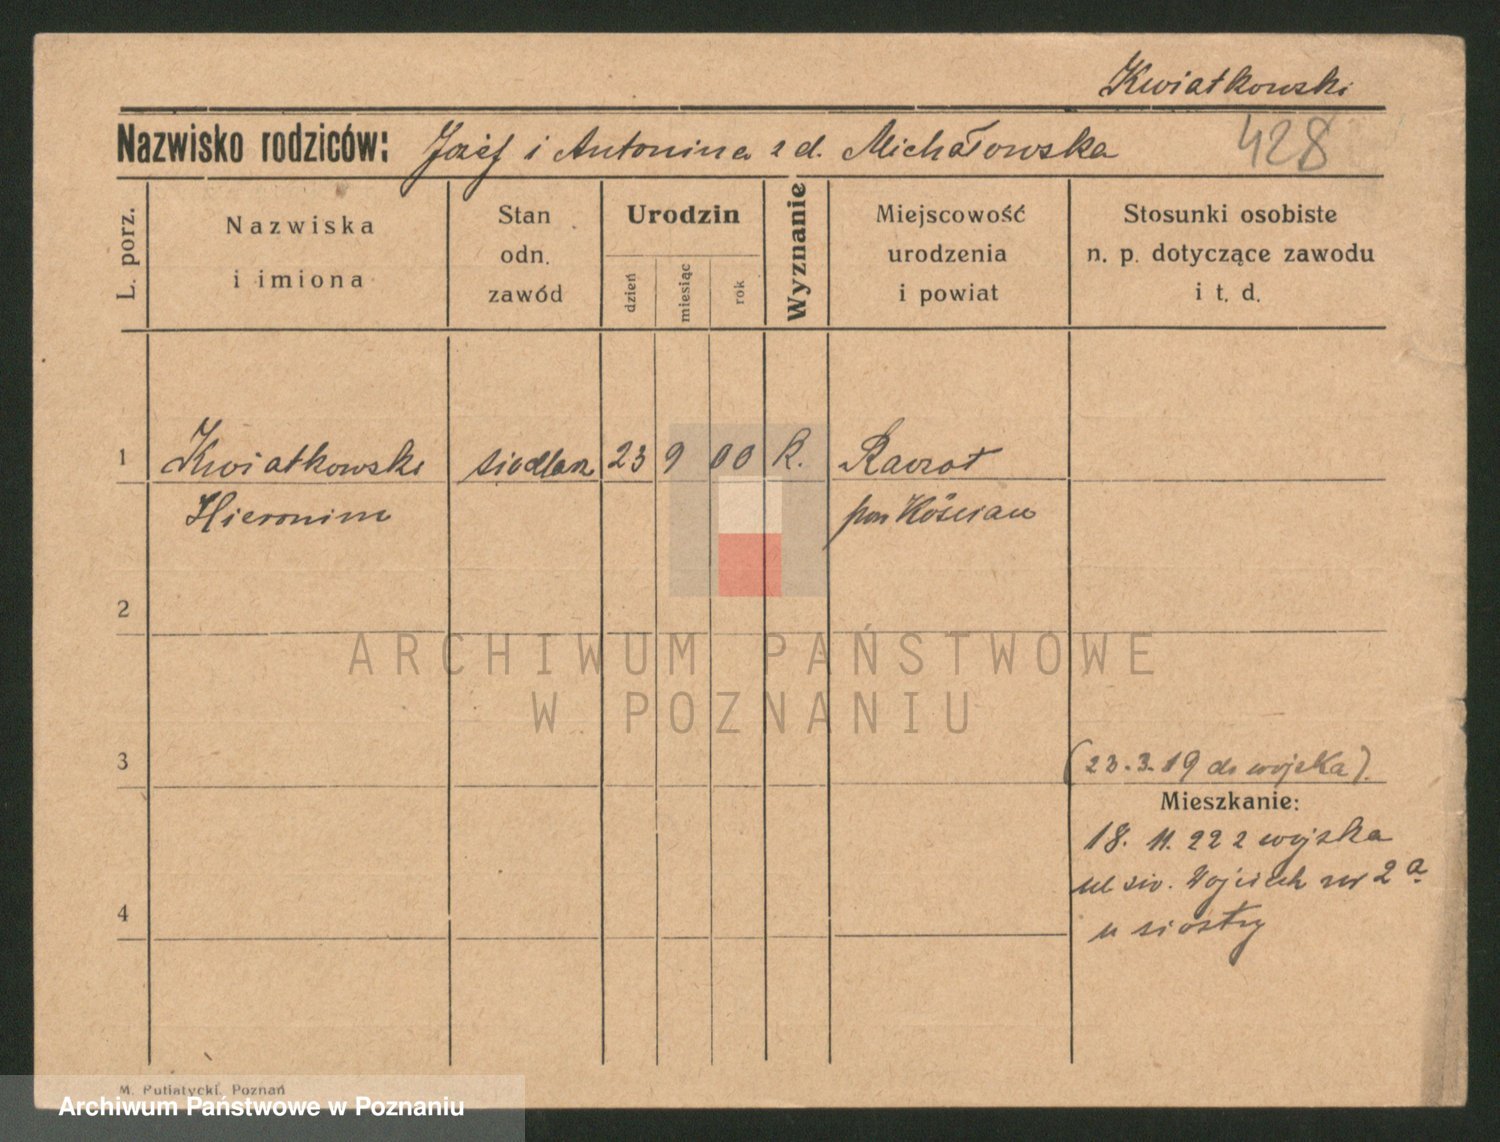 Kwiatkowski
Nazwisko rodziców: Józef i Antonina z d. Michałowska
428
L. porz.
Nazwiska
i imiona
Stan
odn.
zawód
Urodzin
dzień
miesiąc
rok
Wyznanie
Miejscowość
urodzenia
i powiat
Stosunki osobiste
n. p. dotyczące zawodu
i t. d.
1 Kwiatkowski siodlarz 23 9 00 k.
Hieronim pow Kościan
2
ARCHIWUM PAŃSTWOWE
W POZNANIU
3
(23.3.19 do wojska).
Mieszkanie:
18. 11. 22 z wojska
ul św. Wojciech nr 2a
4
u siostry
M. Putiatycki, Poznań
Archiwum Państwowe w Poznaniu